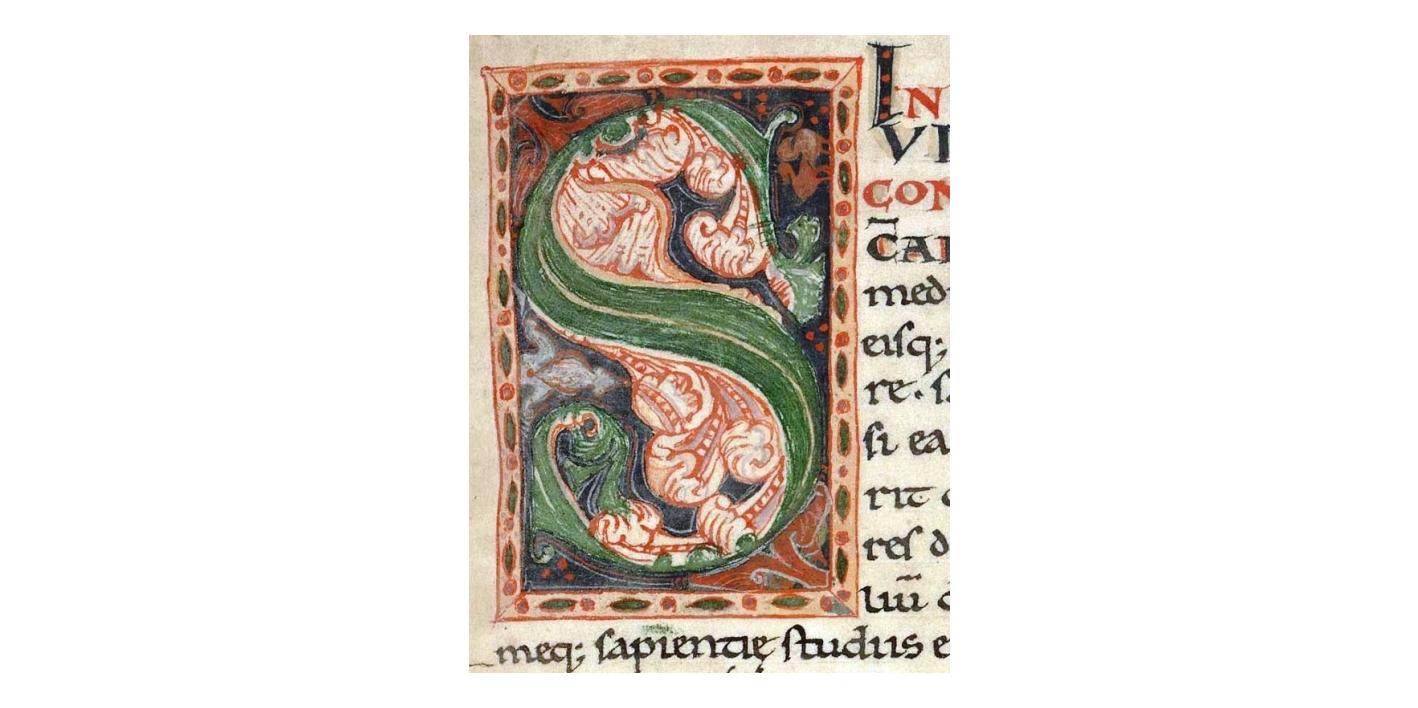 S
IN
VI
CON
C̄AR
med
eiſq;
re. ſ
ſi ea
rit
reſ d
liū
meq; sapientię ſtudiis e